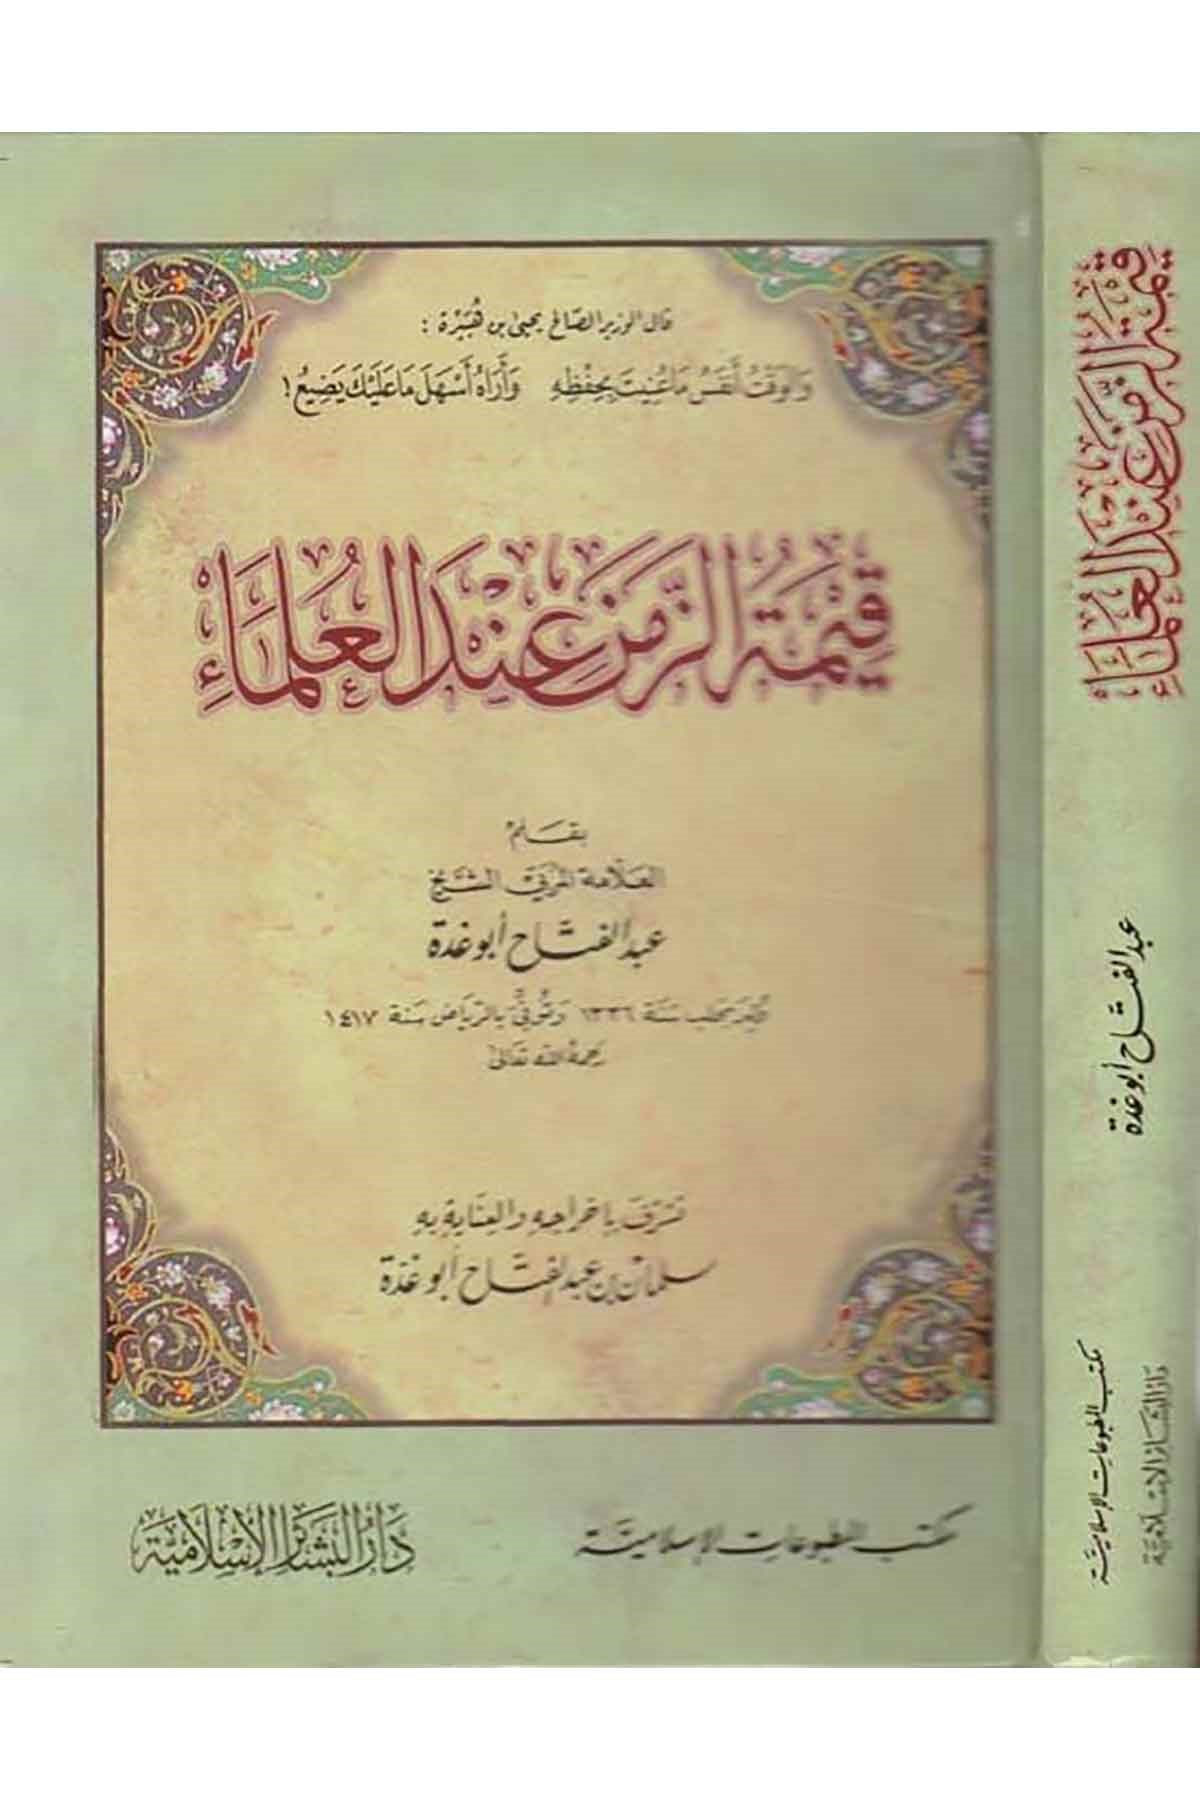 قال الوزير الصالح يحيى بن هُبَيْرة :
وَالوَقْتُ أَنْفَسُ مَا عُنِيتَ بِحِفْظِهِ وَأَرَاهُ أَسْهَلَ مَا عَلَيْكَ يَضِيعُ !
قِيْمَةُ الزَّمَنِ عِنْدَ العُلَمَاءِ
بقلم
العلامة المربي الشيخ
عبد الفتاح أبو غدة
وُلِدَ بحلب سنة ١٣٣٦ وتُوُفِّيَ بالرياض سنة ١٤١٧
رحمه الله تعالى
تشرف بإخراجه والعناية به
سلمان بن عبد الفتاح أبو غدة
مكتب المطبوعات الإسلامية
دَارُ البَشَائِرِ الإِسْلَامِيَّة
قِيْمَةُ الزَّمَنِ عِنْدَ العُلَمَاءِ
عبد الفتاح أبو غدة
مكتب المطبوعات الإسلامية
دار البشائر الإسلامية